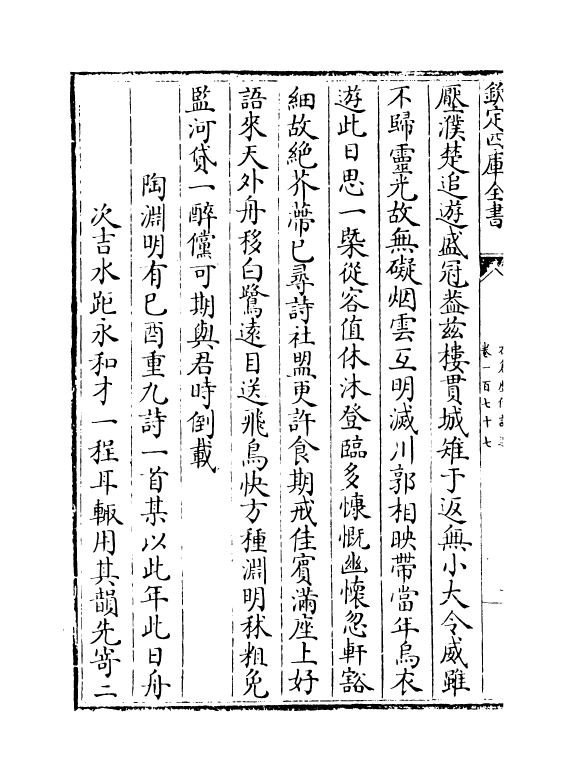 欽定四庫全書
卷一百七十七
壓濮楚追遊盛冠葢茲樓貫城雉于返無小大令威雖
不歸靈光故無礙烟雲互明滅川郭相映帶當年烏衣
遊此日思一槩從容值休沐登臨多慷慨幽懷忽軒豁
細故絶芥蔕已尋詩社盟更許食期戒佳賓滿座上好
語來天外舟移白鷺遠目送飛鳥快方種淵明秫粗免
監河貸一醉儻可期與君時倒載
陶淵明有己酉重九詩一首某以此年此日舟
次吉水距永和才一程耳輙用其韻先寄二